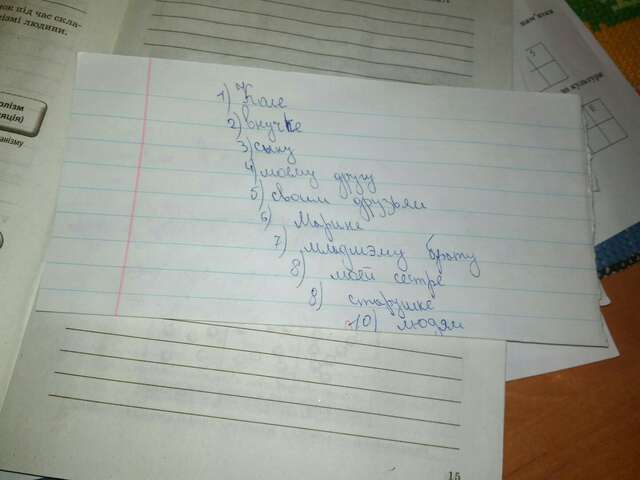 юк під час скла-
ізмі людини.
олізм
яція)
анізму
пам'ятах
культури
1) Коле
2) внучке
3) сыну
4) моему другу
5) своим друзьям
6) Марине
7) младшэму брату
8) моей сестре
9) старушке
10) людям
15